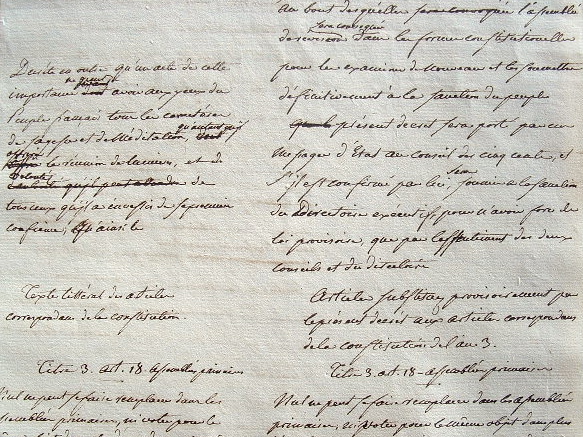 au bout desquelles sera convoquée l'assemblée
sera convoquée
de revision dans la forme constitutionelle
pour les examiner de Nouveau et les soumettre
définitivement à la sanction du peuple
que le présent décret sera porté par un
messager d'État au conseil des cinq cents, et
s'il est confirmé par lui, sera soumis à la sanction
du directoire exécutif pour n'avoir force de
loi provisoire, que par des deux
conseils et du directoire
Décrète en outre qu'un acte de cette
importance avoir aux yeux du
Peuple français tous les caractères
de sagesse et de Méditation, qu'auront qu'il
la réunion de lumières, et de
de
tous ceux qui a
confiance,
Texte littéral des articles
correspondans de la constitution.
Titre 3. art. 18 assemblées primaires
Nul ne peut se faire remplacer dans les
assemblées primaires, ni voter pour le
Articles substitués provisoirement par
le présent décret aux articles correspondans
de la constitution de l'an 3.
Titre 3. art. 18 - assemblées primaires
Nul ne peut se faire remplacer dans les assemblées
primaires, ni voter pour le même objet dans plus